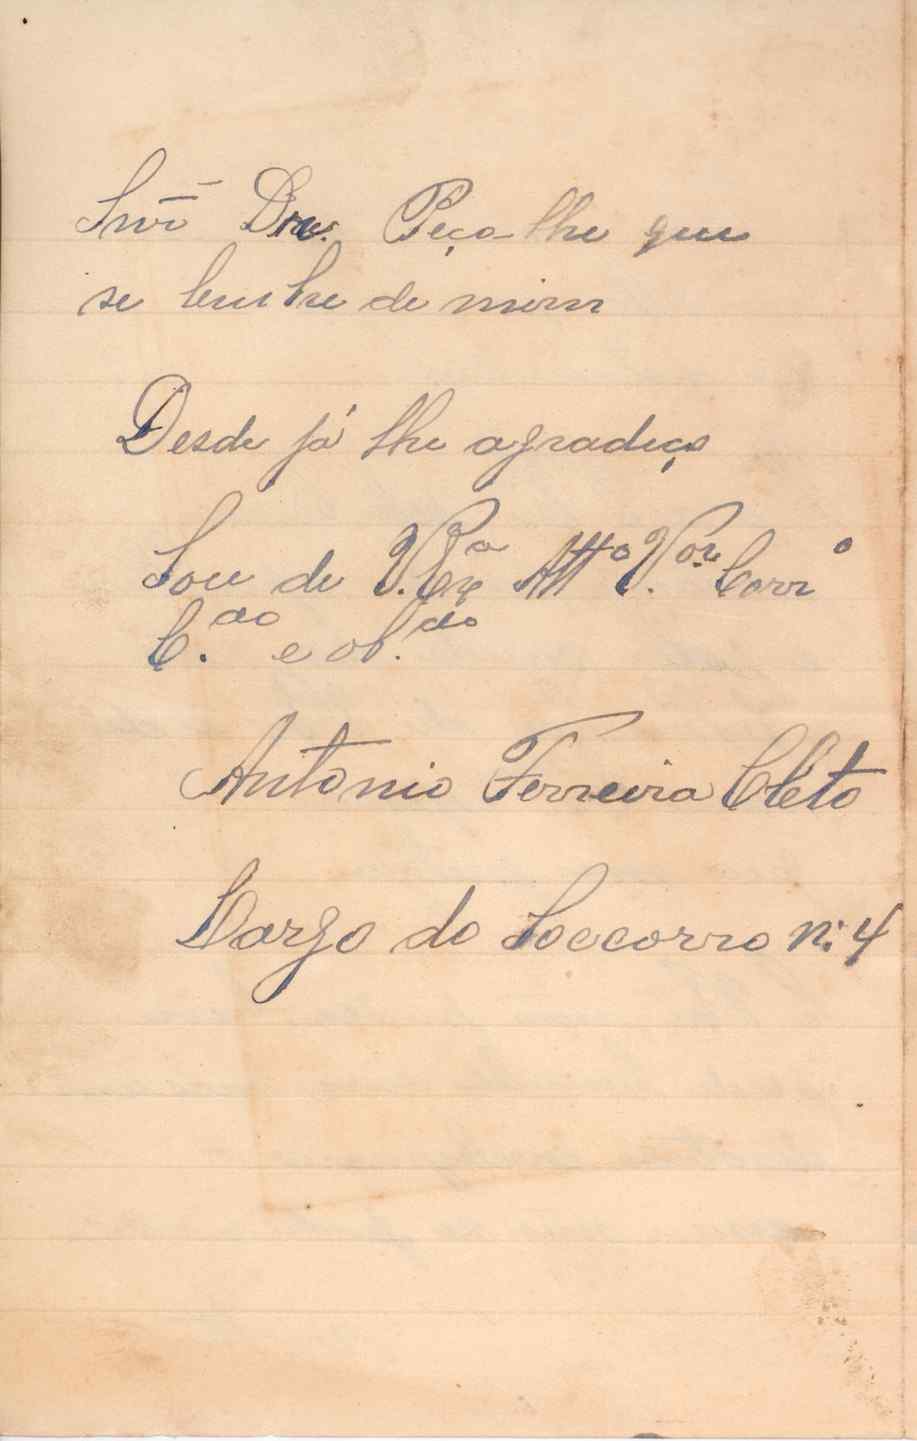 Snr Dr. Peço-lhe que
se lembre de mim
Desde já lhe agradeço
Sou de V. Exª Attº V.or
C.do e ob.do
Antonio Ferreira Cleto
Largo do Soccorro n: 4